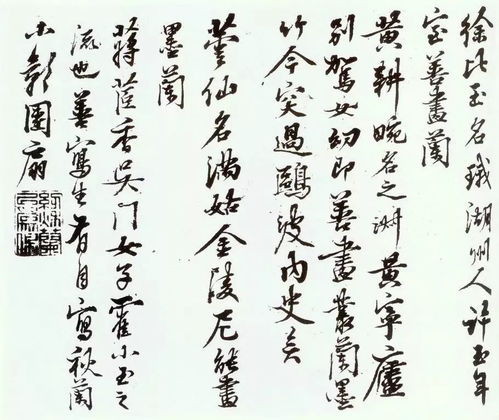 徐比玉名珴湖州人許玉年
室善畫蘭
黄耕畹名之淑黄寧廬
別駕女幼即善畫叢蘭墨
竹今突過鷗波内史矣
蓮仙名满姑金陵尼能畫
墨蘭
蔣蓝香吴门女子霍小玉之
流也善寫生眉月寫秋蘭
小影團扇